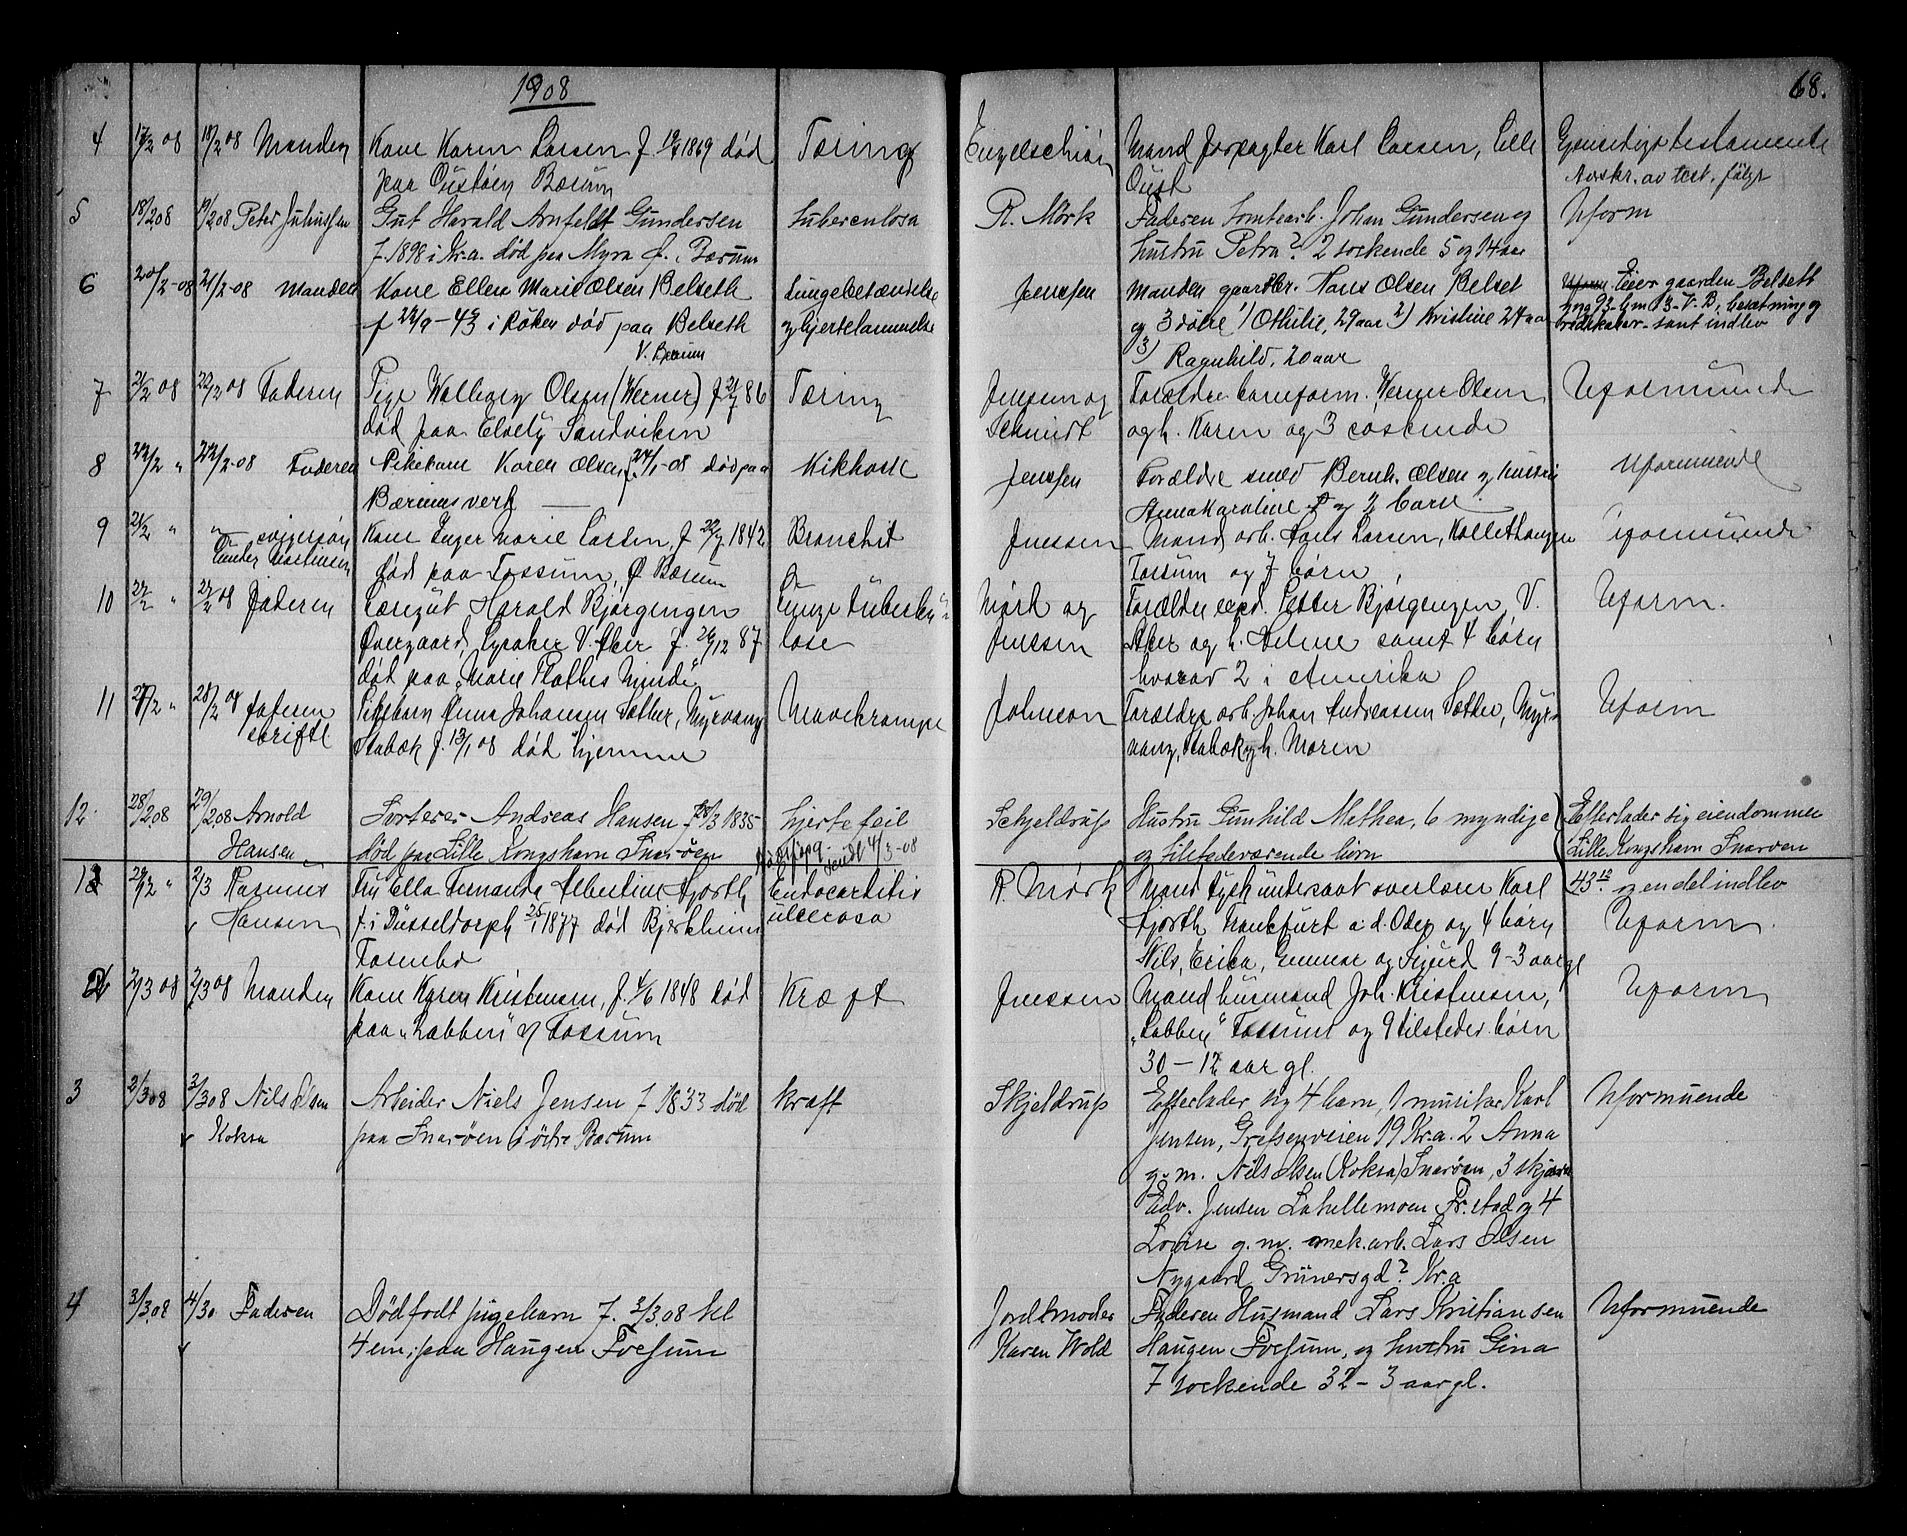 1908
68.
4 17/2 08 18/2 08 Manden Kone Karen Larsen f. 19/ 1869 død Tæring Engelschiøn Mand forpagter Karl Larsen, Lille Gjensidigt testamente
paa Oustøen Bærum Oust Avskr. av test. følgt
5 18/2 08 19/2 08 Peter Juliussen Gut Harald Arnfeldt Gundersen tuberculosa R. Mørk Faderen tomtearb. Johan Gundersen og Uform
f. 1898 i Kr.a. død paa Myra Ø. Bærum hustru Petra? 2 søskende 5 og 14 aar
6 20/2-08 21/2-08 Manden Kone Ellen Marie Olsen Belseth Lungebetændelse Jenssen Manden gaardbr. Hans Olsen Belset Uform Eier gaarden Belseth
f 22/9-43 i Røken død paa Belseth og hjertelammelse og 3 døtre 1) Othilie, 29 aar 2) Kristine 24 aar g.no 93 b.no 3 V.B., besætning og
V. Bærum 3) Ragnhild, 20 aar redskaber samt indbo
7 21/2 08 22/2 08 Faderen Pige Walborg Olsen (Werner) f 21/7 86 Tæring Jenssen og Forældre baneform. Werner Olsen Uformuende
død paa Elvely Sandviken Schmidt og h. Karen og 3 søskende
8 22/2 " 24/2-08 Faderen Pikebarn Karen Olsen, f. 24/1-08 død paa Kikhoste Jenssen Forældre smed Bernh. Olsen og hustru Uformuende
Bærums verk Anna Karoline f og 2 barn
9 21/2 " " svigersøn Kone Inger Marie Larsen, f 22/7 1842 Bronchit Jenssen Mand, arb. Hans Larsen, Kollethaugen Uformuende
Martinsen død paa Fossum, Ø Bærum Fossum og 7 børn
10 27/2 " 27/2 08 Faderen Harald Bjørgengen Lunge tuberku- Mørk og Forældre exp. Petter Bjørgengen, V. Uform.
Overgaard, Lysaker V. Aker f. 26/12 87 lose Jenssen Aker og h. Helene samt 4 børn
død paa "Marie Plathes Minde" hvorav 2 i Amerika
11 27/2 " 28/2 08 Faderen Pikebarn Anna Johansen Sæther, Myrvang Mavekrampe Johnson Forældre arb. Johan Andreassen Sæther, Myr- Uform
skriftl Stabæk f. 13/1 08 død hjemme vang, Stabæk og h. Maren
12 28/2 08 29/2 08 Arnold Sorterer Andreas Hansen f 28/3 1835 Hjertefeil Schjeldrup Hustru Gunhild Mathea, 6 myndige Efterlader sig eiendommen
Hansen død paa Lille Kongshavn Snarøen sendt 4/3-08 og tilstedeværende børn Lille Kongshavn Snarøen
13 29/2 " 2/3 Rasmus Fru Ella Fernanda Albertine Hjorth Endocarditis R. Mørk Mand tysk undersaat overlærer Karl 43 12 og en del indbo
Hansen f. i Düsseldorph 25/1 1877 død Bjerkheim ulcerosa Hjorth Frankfurt a. d. Oder og 4 børn Uform
Fornebo Nils, Erika, Gunnar og Sigurd 9-3 aar gl
2 2/3 08 2/3 08 Manden Kone Karen Kristensen, f. 4/6 1848 død Kræft Jenssen Mand husmand Joh. Kristensen, Uform
paa "Labben" v/ Fossum "Labben" Fossum og 9 tilsteder. børn
30 – 12 aar gl.
3 2/3 08 3/3 08 Nils Olsen Arbeider Niels Jensen f 1833 død kræft Skjeldrup Efterlader sig 4 barn, 1 musiker Karl Uformuende
Koksa paa Snarøen i østre Bærum Jensen, Grefsenveien 19 Kr.a. 2 Anna
g. m. Nils Olsen (Koksa) Snarøen, 3
Edv. Jensen Lahellemoen Fr.stad og 4
Lovise g. m. mek. arb. Lars Olsen
Nygaard Grünersgd? Kr.a
4 3/3 08 4/3 0 Faderen Dødfødt pigebarn f. 3/3 08 kl Jordmoder Faderen Husmand Lars Kristiansen Uformuende
4 em, paa Haugen Fossum Karen Wold Haugen Fossum, og hustru Gina
7 søskende 32 – 3 aar gl.